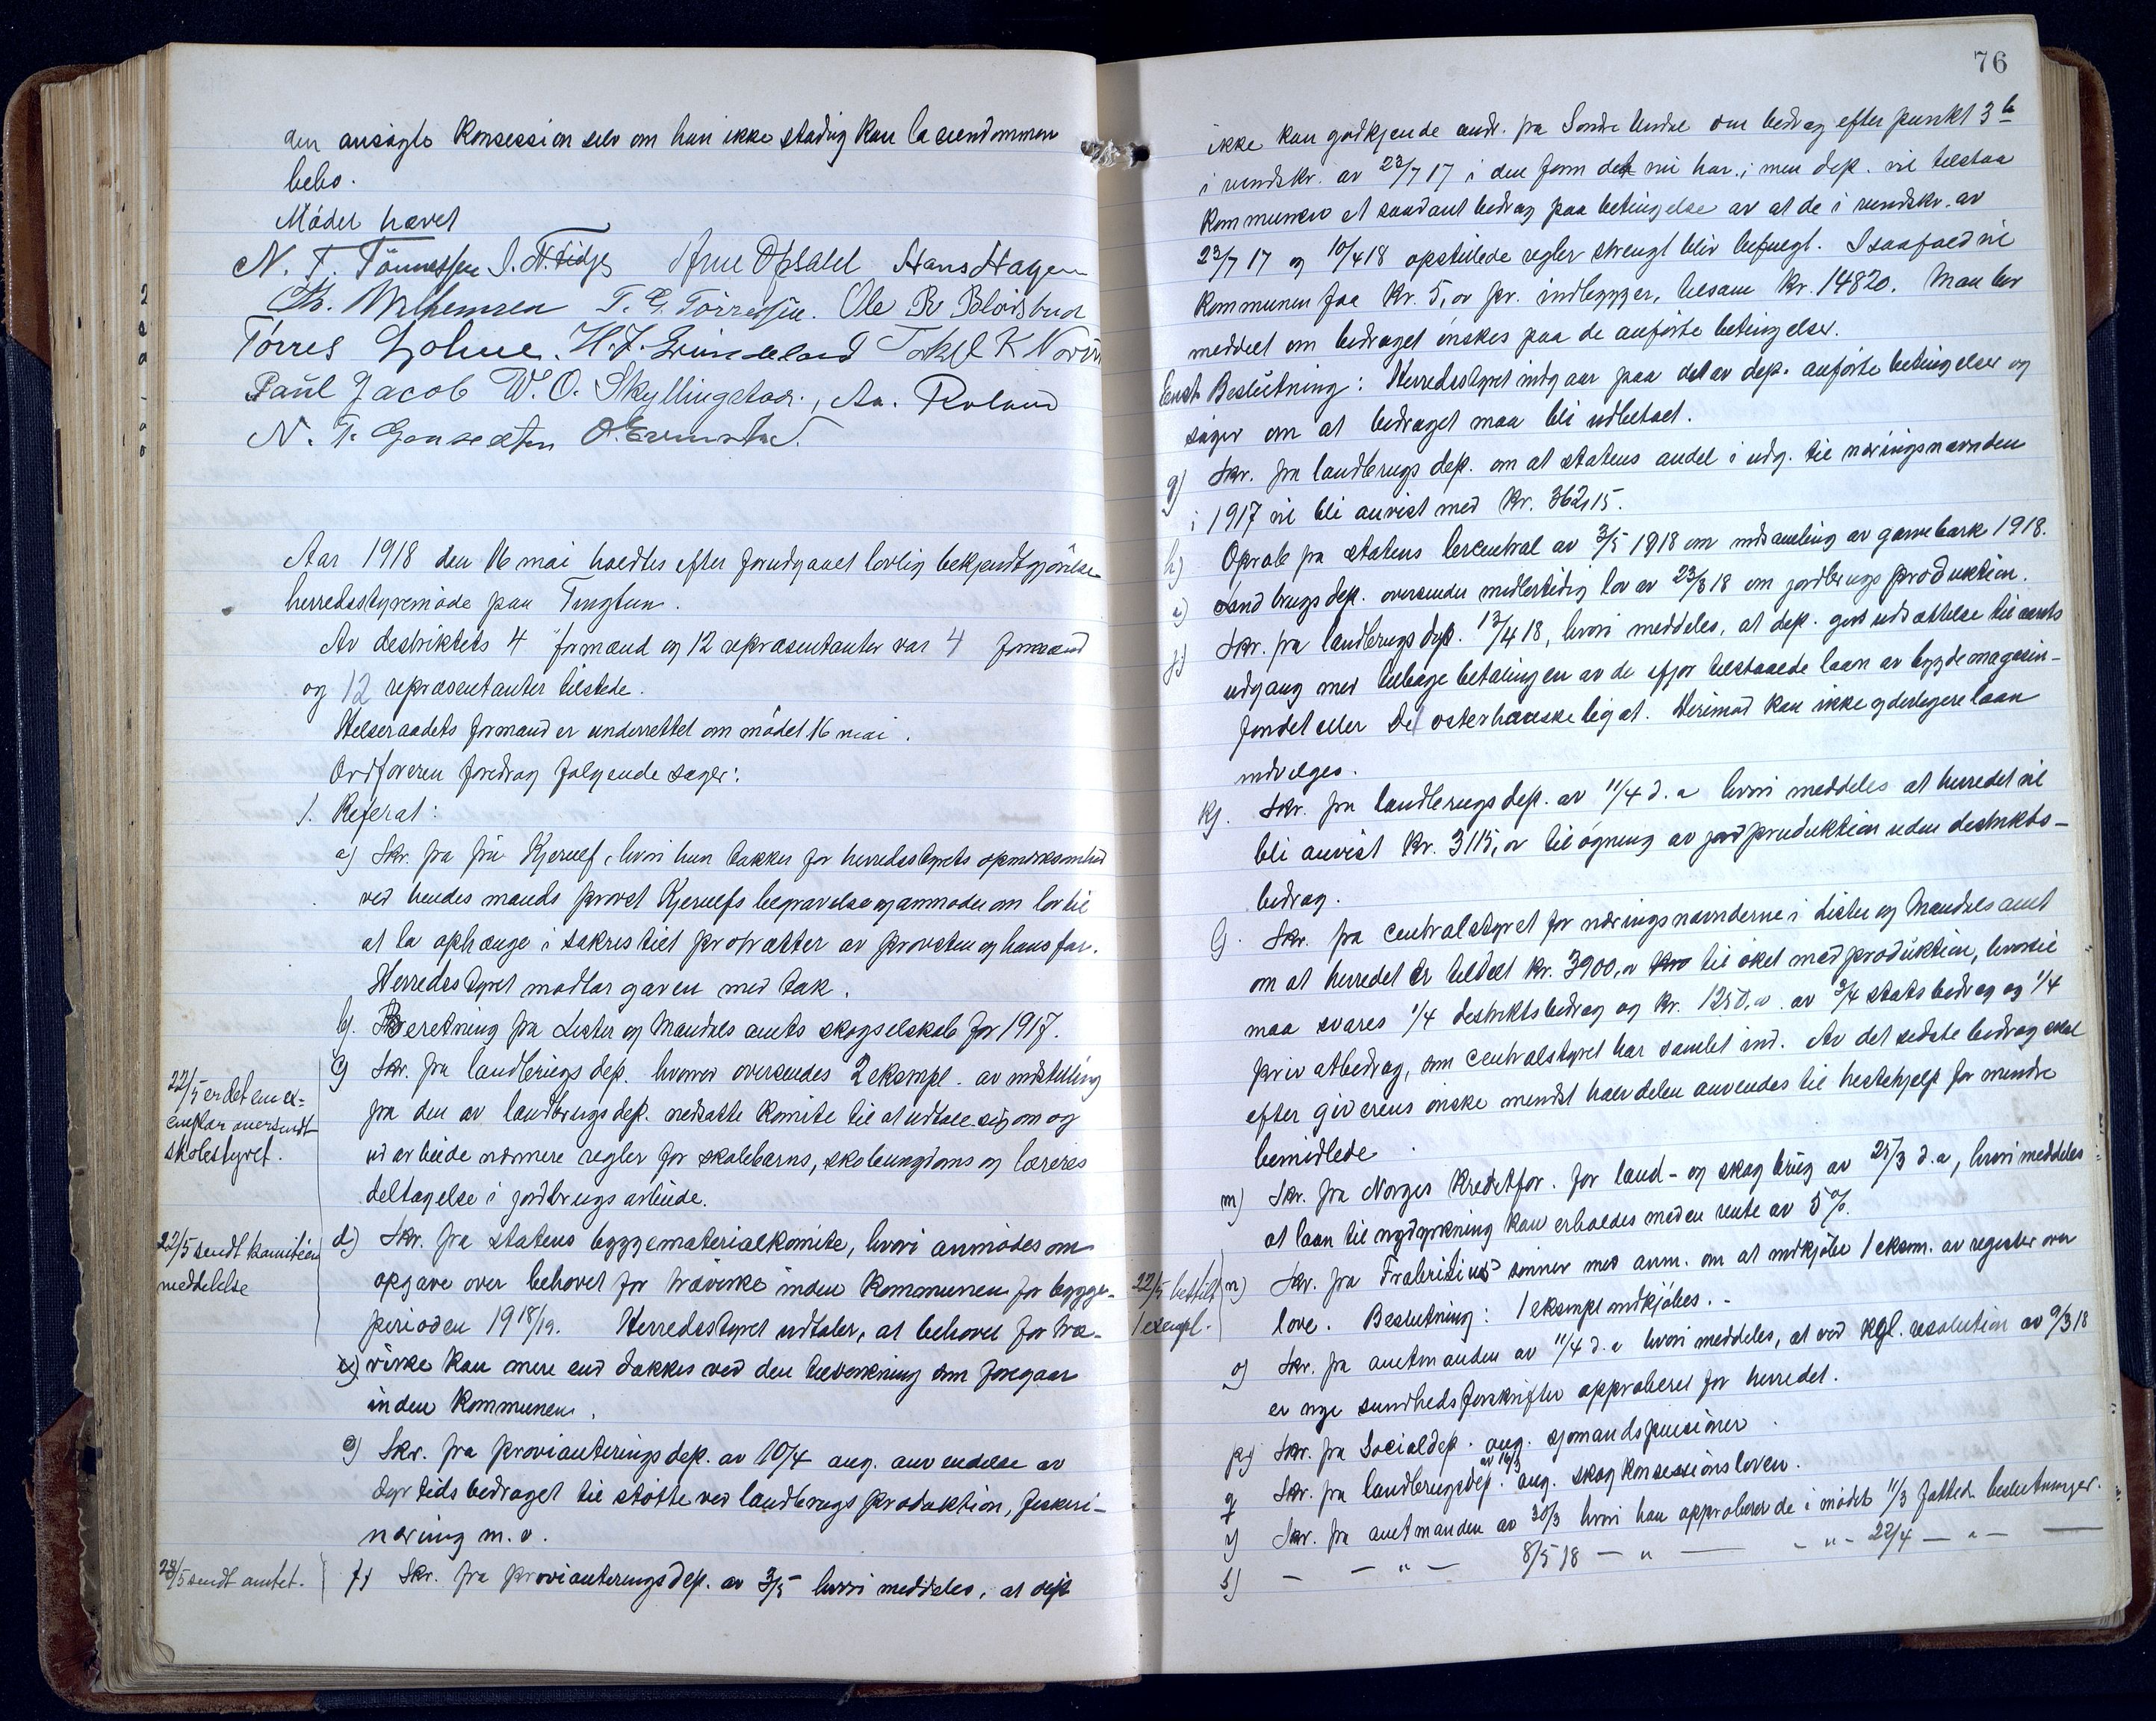 den ansögte Konsession selv om han ikke stadig kan la eiendommen
bebo.
Mödet hævet
N. T. Tönnessen Arne Opsahl Hans Hagen
T. G. Törressen. Ole B.
Törres H. J. Torkel K
Paul Jacob W. O. Skyllingstad., Aa. Roland
N. T.
Aar 1918 den 16 mai holdtes efter forudgaaet lovlig bekjendtgjörelse
herredsstyremöde paa Tingtun.
Av destriktets 4 formænd og 12 repræsentanter var 4 formænd
og 12 repræsentanter tilstede.
Helseraadets formand er underrettet om mödet 16 mai.
Ordföreren foredrog fölgende sager:
1. Referat:
a) Skr. fra fru Kjerulf, hvori hun takker for herredsstyrets opmerksomhed
ved hendes mands provst Kjerulfs begravelse og anmoder om lov til
at la ophænge i sakristiet portrætter av provsten og hans far.
Herredsstyret modtar gaven med tak.
b). Beretning fra Lister og Mandals amts skogselskab for 1917.
c) Skr. fra landbrugsdep. hvorved oversendes 2 eksempl. av indstilling
fra den av landbrugsdep. nedsatte komite til at udtale sig om og
udarbeide nærmere regler for skolebarns, skoleungdoms og læreres
deltagelse i jordbrugsarbeide.
22/5 er det ene ex-
emplar oversendt
skolestyret.
d) Skr. fra statens byggematerialkomite, hvori anmodes om
opgave over behovet for trævirke inden kommunen for bygge-
perioden 1918/19. Herredsstyret udtaler, at behovet for træ-
e) virke kan mere end dækkes ved den tilvirkning som foregaar
inden kommunen.
22/5 sendt komiteen
meddelelse
e) Skr. fra provianteringsdep. av 10/4 ang. anvendelse av
dyrtidsbedraget til stötte ved landbrugsproduktion, fiskeri-
næring m.v.
f) Skr. fra provianteringsdep. av 3/5 hvori meddeles, at dep.
23/5 sendt amtet.
76
ikke kan godkjende andr. fra Sondre Undal om bedrag efter punkt 3 b
i rundskr. av 23/7 17 i den form det nu har; men dep. vil tilstaa
kommunen et saadant bedrag paa betingelse av at de i rundskr. av
23/7 17 og 10/4 18 opstillede regler strengt blir befulgt. I saafald vil
kommunen faa Kr. 5,00 pr. indbygger, tilsam Kr. 14820. Man ber
meddelt om bedraget önskes paa de anförte betingelser.
Enst. Beslutning: Herredsstyret indgaar paa det av dep. anförte betingelser og
söger om at bedraget maa bli udbetalt.
g) Skr. fra landbrugsdep. om at statens andel i udg. til næringsnævnden
i 1917 vil bli anvist med Kr. 362,15.
h) Oprob fra statens lærcentral av 3/5 1918 om indsamling av garvebark 1918.
i) Landbrugsdep. oversender midlertidig lov av 23/3 18 om jordbrugsproduktion.
j) Skr. fra landbrugsdep. 12/4 18, hvori meddeles, at dep. gir udsættelse til aarets
udgang med tilbagebetalingen av de ifjor tilstaaede laan av bygdemagasin-
fondet eller Det osterhauske legat. Derimod kan ikke yderligere laan
indvilges.
k). Skr. fra landbrugsdep. av 11/4 d. a hvori meddeles at herredet vil
bli anvist Kr. 3115,00 til ögning av jordproduktion uden destrikts-
bedrag.
l). Skr. fra centralstyret for næringsnævnderne i Lister og Mandals amt
om at herredet er tildelt Kr. 3900,00 til öket madproduktion, hvortil
maa svares 1/4 destriktsbedrag og Kr. 1250,00. av 3/4 statsbedrag og 1/4
privatbedrag, som centralstyret har samlet ind. Av det sidste bedrag skal
efter giverens önske mindst halvdelen anvendes til hestehjelp for mindre
bemidlede.
m) Skr. fra Norges Kreditfor. for land- og skogbrug av 25/3 d. a, hvori meddeles
at laan til nydyrkning kan erholdes med en rente av 5 %.
n) Skr. fra Frabritius sönner med anm. om at indkjöbe 1 eksm. av register over
love. Beslutning: 1 eksempl indkjöbes. -
22/5 bestilt
1 exempl.
o) Skr. fra amtmanden av 11/4 d. a hvori meddeles, at ved kgl. resolution av 9/3 18
er nye sundhedsforskrifter approberet for herredet.
p) Skr. fra Socialdep. ang. sjömandspensioner.
q Skr. fra landbrugsdep. av 16/3 ang. skogkonsessionsloven.
r) Skr. fra amtmanden av 30/3 hvori han approberer de i mödet 11/3 fattede beslutninger.
s) — — " — 8/5 18 — " — - " - 22/4 — " — —